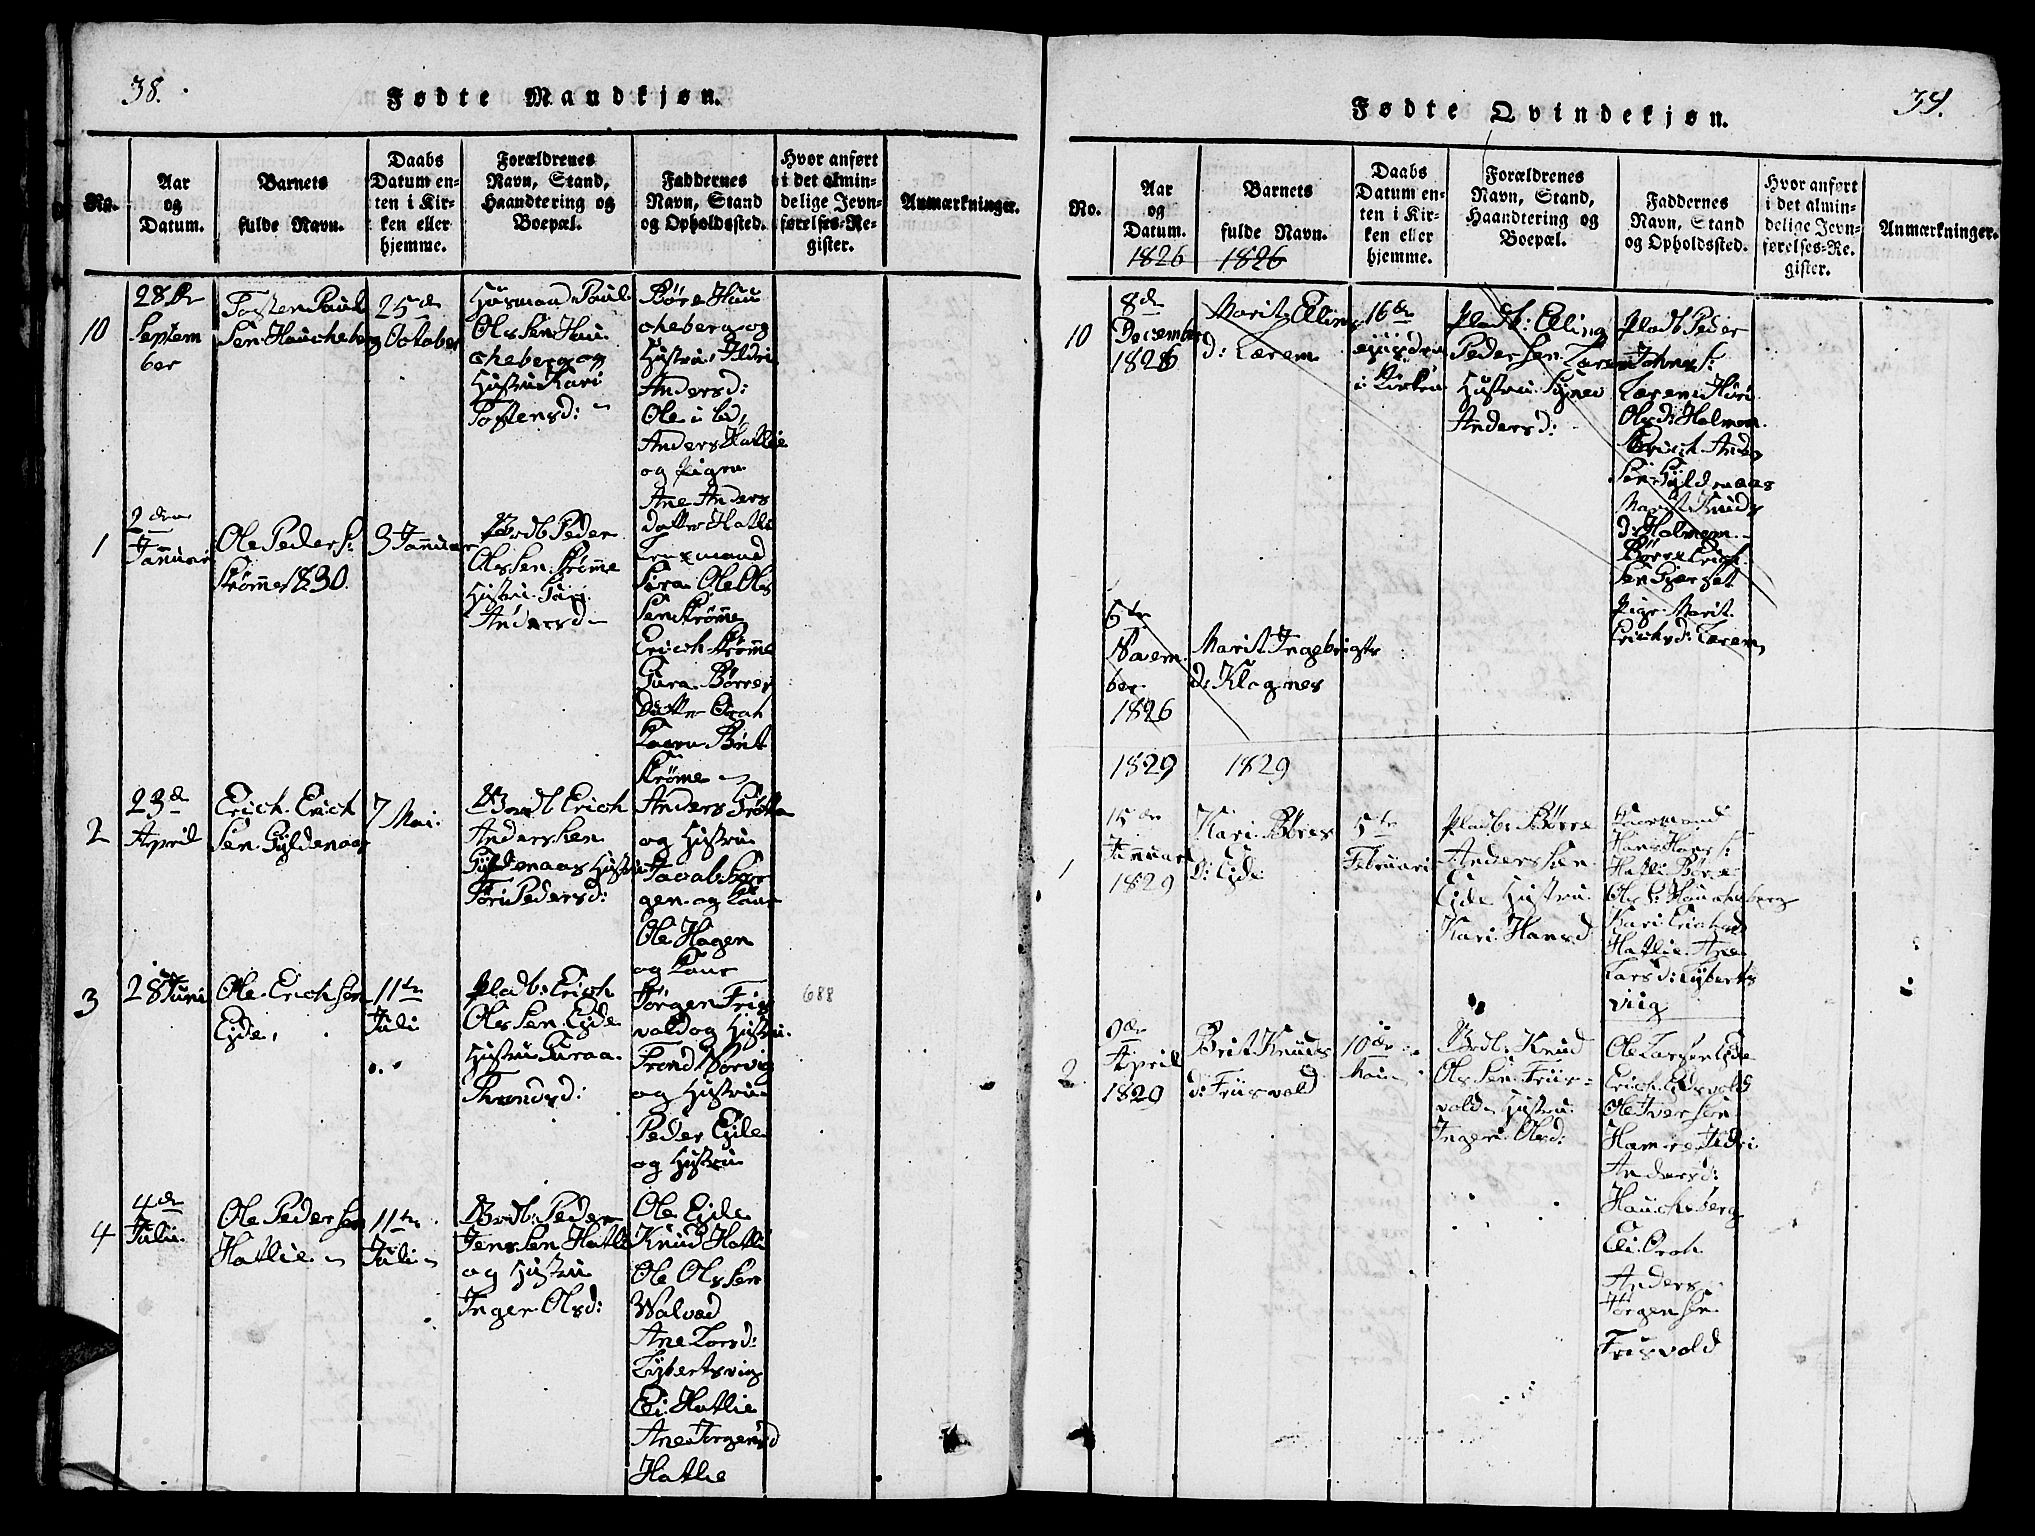 38.
Fødte Mandkjøn.
No.
Aar
og
Datum.
Barnets
fulde Navn.
Daabs
Datum en-
ten i Kir-
ken eller
hjemme.
Forældrenes
Navn, Stand,
Haandtering og
Boepæl.
Faddernes
Navn, Stand
og Opholdssted.
Hvor anført
i det almin-
delige Jevn-
førelses-Re-
gister.
Anmærkninger.
10
28de
Septem
ber
Tosten Paul
Sen Haucheberg
25de
October
Huusmand Paul
Ols Sen Hau
cheberg og
Hustru Kari
Tostensd:
Børe Hau
cheberg og
Hustru Ildri
Andersd:
Ole
Anders Hatlie
og Pigen
Ane Anders
datter Hatle
1
2den
Januari
Ole Peders:
Strømme 1830.
3 Januar
Bordb Peder
Ols Sen Strømme
Hustru Turi
Andersd
Ole Ols
Sen Strømme
Erich Strømme
Gura Børres
Datter Orah
Brit
Strømme
2
23de
April
Erich Erich
Sen Gyldenaas
7 Mai.
Bordb Erich
Andersen
Gyldenaas Hustru
Turi Pedersd:
Anders
og Hustru
Ole Hagen
og Kone
3
28 Juni
Ole Erichsen
Eide,
11te
Juli
Pladb: Erich
Ols Sen Eide
Hustru Guraa
Throndsd:
Jørgen Friis
vold og Hustru.
Trond Nørvig
og Hustru
Peder Eide
og Hustru
688
4
4de
Juli.
Ole Peder Sen
Hatlie
11te
Juli
Bordb: Peder
Jens Sen Hatle
og Hustru
Inger Olsd:
Ole Eide
Knud Hatle
Ole Ols Sen
Walvad
Ane Larsd:
Lybertsvig
Eli Hatlie
Ane Jørgensd
Hatlie
34.
Fødte Qvindekjøn.
No.
Aar
og
Datum.
1826
Barnets
fulde Navn.
1826
Daabs
Datum en-
ten i Kir-
ken eller
hjemme.
Forældrenes
Navn, Stand,
Haandtering og
Boepæl.
Faddernes
Navn, Stand
og Opholdssted.
Hvor anført
i det almin-
delige Jevn-
førelses-Re-
gister.
Anmærkninger.
10
8de
December
1826
Marit Elling
d: Lærem
16de
ejusdem
i Kirken
Pladb: Elling
Peder Sen Lærem
Hustru Signe
Andersd:
Pladb Peder
Johns:
Lærem
Olsd: Holmem
Erich Anders
Sen Gyldenaas
Marit Knuds
d: Holmem
Børre Erich
Sen Gjerset
Pige Marit
Erichsd: Lærem
5te
Novem
ber
1826
Marit Ingebrigts
d: Klognes
1829
1829
1
15de
Januari
1829
Kari Børes
d: Eide
5te
Februari
Pladb: Børre
Andersen
Eide Hustru
Kari Hansd
Hans Hans:
Hatle Børre
Ols S: Haucheberg
Kari Erichsd
Hatlie Ane
Larsd: Lyberts
vig
2
9de
April
1829
Brit Knuds
d: Friisvold
10de
Mai
Bordb: Knud
Ols Sen Friis-
vold Hustru
Ingeri Olsd:
Ole Larsen Eide
Erich Eidsvold
Ole Iversen
Hamre Ildri
Andersd:
Haucheberg
Eli Orah
Anders
Jørgensen
Friisvold